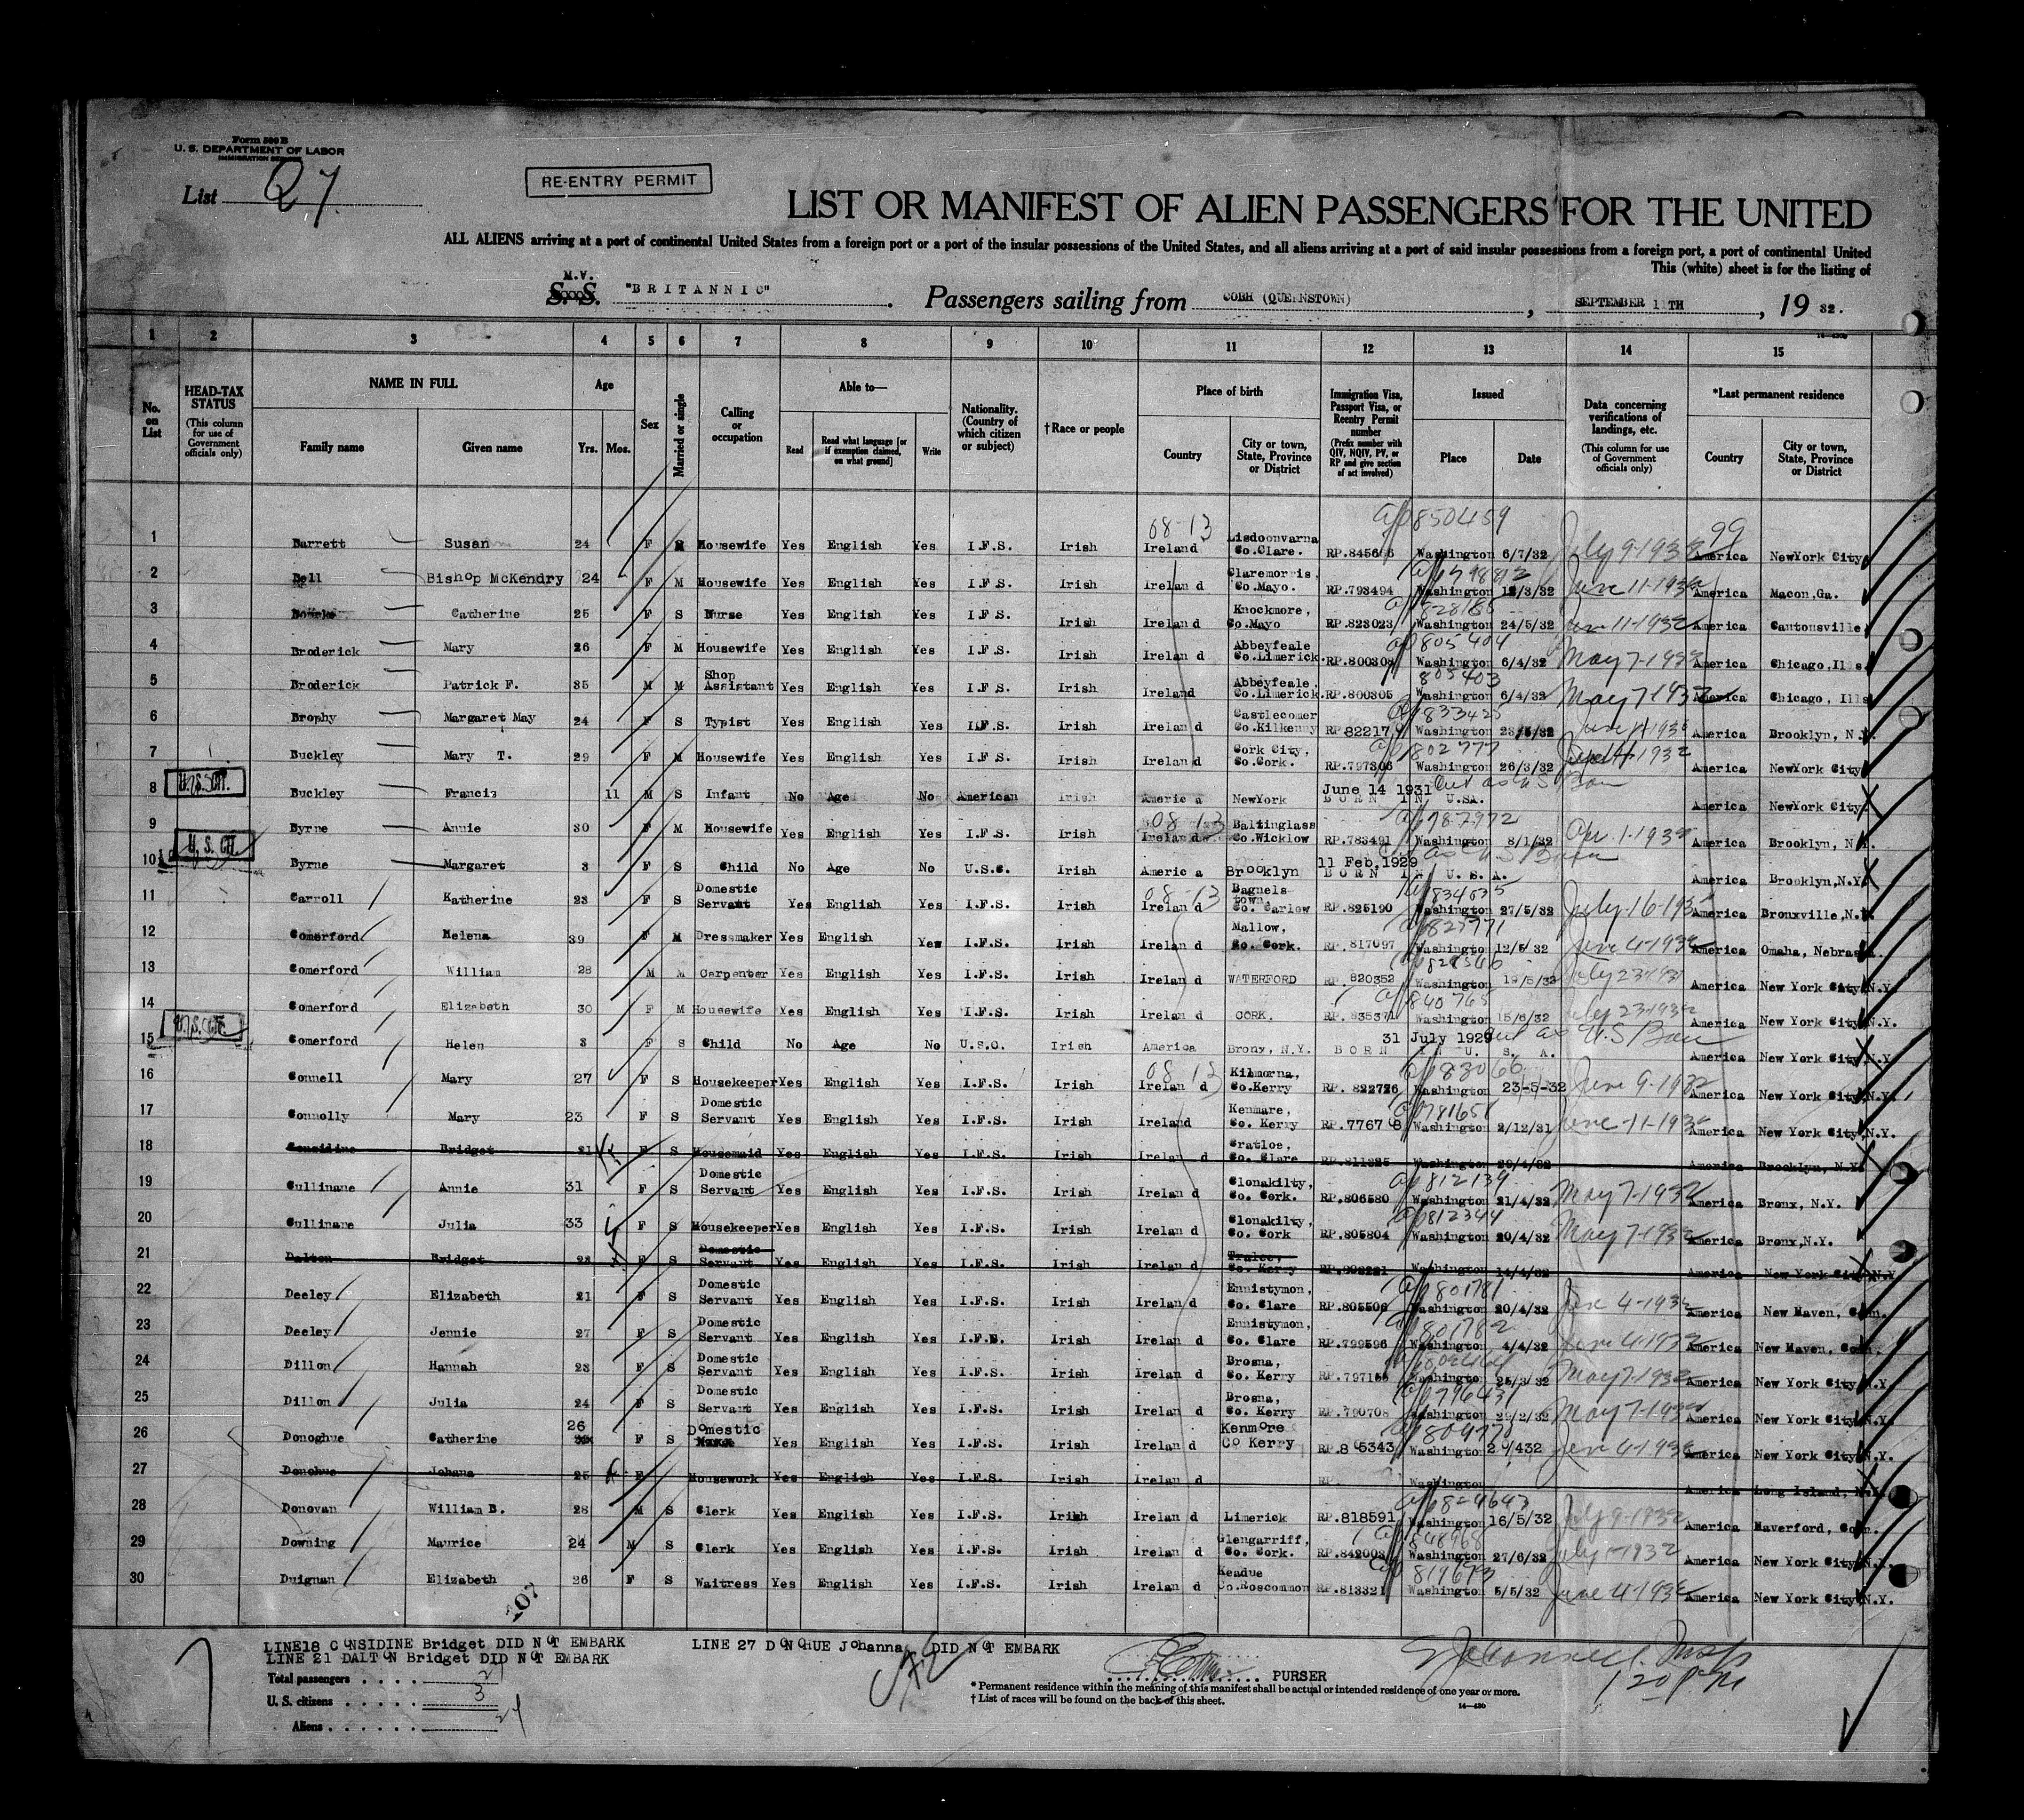 Form 500 B
U. S. DEPARTMENT OF LABOR
IMMIGRATION SERVICE
List 27.
RE-ENTRY PERMIT
LIST OR MANIFEST OF ALIEN PASSENGERS FOR THE UNITED
ALL ALIENS arriving at a port of continental United States from a foreign port or a port of the insular possessions of the United States, and all aliens arriving at a port of said insular possessions from a foreign port, a port of continental United
This (white) sheet is for the listing of
M.V.
S. S. "BRITANNIC" . Passengers sailing from COBH (QUEENSTOWN) , SEPTEMBER 11TH , 19 32.
1 2 3 4 5 6 7 8 9 10 11 12 13 14 15
No. on List
HEAD-TAX STATUS (This column for use of Government officials only)
NAME IN FULL Family name Given name
Age Yrs. Mos.
Sex
Married or single
Calling or occupation
Able to— Read Read what language [or if exemption claimed, on what ground] Write
Nationality. (Country of which citizen or subject)
†Race or people
Place of birth Country City or town, State, Province or District
Immigration Visa, Passport Visa, or Reentry Permit number (Prefix number with QIV, NQIV, PV, or RP and give section of act involved)
Issued Place Date
Data concerning verifications of landings, etc. (This column for use of Government officials only)
*Last permanent residence Country City or town, State, Province or District
08-13 850459 99
1 Barrett Susan 24 F Housewife Yes English Yes I.F.S. Irish Ireland Lisdoonvarna Co.Clare. Washington 6/7/32 July 9-1932 America NewYork City
2 Bell Bishop McKendry 24 F M Housewife Yes English Yes I.F.S. Irish Ireland Claremorris, Co.Mayo. RP.793494 798812 Washington /3/32 June 11-1932 America Macon,Ga.
3 Bourke Catherine 25 F S Nurse Yes English Yes I.F.S. Irish Ireland Knockmore, Co.Mayo RP.823023 828185 Washington 24/5/32 June 11-1932 America Cantonsville
4 Broderick Mary 26 F M Housewife Yes English Yes I.F.S. Irish Ireland Abbeyfeale Co.Limerick 805404 Washington 6/4/32 May 7-1932 America Chicago,Ills.
5 Broderick Patrick F. 35 M M Shop Assistant Yes English Yes I.F.S. Irish Ireland Abbeyfeale, Co.Limerick RP.800305 805403 Washington 6/4/32 May 7-1932 America Chicago, Ills
6 Brophy Margaret May 24 F S Typist Yes English Yes I.F.S. Irish Ireland Castlecomer Co.Kilkenny RP 82217 833425 Washington 23/5/32 June 11-1932 America Brooklyn, N.Y.
7 Buckley Mary T. 29 F M Housewife Yes English Yes I.F.S. Irish Ireland Cork City, Co.Cork. RP.797306 802777 Washington 26/3/32 1932 America NewYork City
U.S. CIT.
8 Buckley Francis 11 M S Infant No Age No American Irish America NewYork June 14 1931 BORN IN U.SA. America NewYork City
9 Byrne Annie 30 F M Housewife Yes English Yes I.F.S. Irish 08-13 Ireland Baltinglass Co.Wicklow RP.783491 787972 Washington 8/1/32 Apr. 1-1932 America Brooklyn, N.Y.
U. S. CIT.
10 Byrne Margaret 3 F S Child No Age No U.S.C. Irish America Brooklyn 11 Feb.1929 BORN IN U.S.A. America Brooklyn,N.Y.
11 Carroll Katherine 23 F S Domestic Servant Yes English Yes I.F.S. Irish 08-13 Ireland Bagnelstown, Co. Carlow RP.825190 834035 Washington 27/5/32 July 16-1932 America Bronxville,N.Y.
12 Comerford Helena 39 F M Dressmaker Yes English Yes I.F.S. Irish Ireland Mallow, Co. Cork. RP.817097 Washington 12/5/32 June 4-1932 America Omaha, Nebraska.
13 Comerford William 28 M M Carpenter Yes English Yes I.F.S. Irish Ireland WATERFORD RP 820352 Washington 19/5/32 July 23-1932 America New York City,N.Y.
14 Comerford Elizabeth 30 F M Housewife Yes English Yes I.F.S. Irish Ireland CORK. RP.835371 840765 Washington 15/6/32 July 23-1932 America New York City,N.Y.
U.S. CIT.
15 Comerford Helen 3 F S Child No Age No U.S.C. Irish America Bronx, N.Y. 31 July 1929 BORN IN U. S. A. America New York City,N.Y.
16 Connell Mary 27 F S Housekeeper Yes English Yes I.F.S. Irish 08 13 Ireland Kilmorna, Co.Kerry RP. 822726 Washington 23-5-32 June 9-1932 America New York City,N.Y.
17 Connolly Mary 23 F S Domestic Servant Yes English Yes I.F.S. Irish Ireland Kenmare, Co. Kerry RP.7767 8 781651 Washington 2/12/31 June 11-1932 America New York City,N.Y.
18 Considine Bridget 21 F S Housemaid Yes English Yes I.F.S. Irish Ireland Cratloe, Co. Clare RP.811325 Washington 29/4/32 America Brooklyn, N.Y.
19 Cullinane Annie 31 F S Domestic Servant Yes English Yes I.F.S. Irish Ireland Clonakilty, Co. Cork. RP.806580 812139 Washington 21/4/32 May 7-1932 America Bronx, N.Y.
20 Cullinane Julia 33 F S Housekeeper Yes English Yes I.F.S. Irish Ireland Clonakilty, Co. Cork RP.805804 812344 Washington 20/4/32 May 7-1932 America Bronx,N.Y.
21 Dalton Bridget 23 F S Domestic Servant Yes English Yes I.F.S. Irish Ireland Tralee, Co. Kerry Washington 14/4/32 America New York City,N.Y.
22 Deeley Elizabeth 21 F S Domestic Servant Yes English Yes I.F.S. Irish Ireland Ennistymon, Co. Clare RP.805506 801781 Washington 20/4/32 June 4-1932 America New Haven, Conn.
23 Deeley Jennie 27 F S Domestic Servant Yes English Yes I.F.S. Irish Ireland Ennistymon, Co. Clare RP.799596 801782 Washington 4/4/32 June 4-1932 America New Haven, Conn.
24 Dillon Hannah 23 F S Domestic Servant Yes English Yes I.F.S. Irish Ireland Brosna, Co. Kerry Washington 25/3/32 May 7-1932 America New York City,N.Y
25 Dillon Julia 24 F S Domestic Servant Yes English Yes I.F.S. Irish Ireland Brosna, Co. Kerry RP.790708 796431 Washington 29/2/32 May 7-1932 America New York City,N.Y.
26 Donoghue Catherine 26 F S Domestic Yes English Yes I.F.S. Irish Ireland Kenmore Co Kerry RP.8 5343 Washington June 4-1932 America New York City,N.Y.
27 Donohue Johana 25 F Housework Yes English Yes I.F.S. Irish Ireland RP. Washington America Long Island, N.Y.
28 Donovan William B. 28 M S Clerk Yes English Yes I.F.S. Irish Ireland Limerick RP.818591 Washington 16/5/32 July 9-1932 America Haverford, Conn.
29 Downing Maurice 24 M S Clerk Yes English Yes I.F.S. Irish Ireland Glengarriff, Co. Cork. RP.842003 848968 Washington 27/6/32 July 1932 America New York City,N.Y.
30 Duignan Elizabeth 26 F S Waitress Yes English Yes I.F.S. Irish Ireland Keadue Co.Roscommon RP.813321 819673 Washington 5/5/32 June 4-1932 America New York City,N.Y.
LINE18 CONSIDINE Bridget DID NOT EMBARK LINE 27 DONOHUE Johanna DID NOT EMBARK
LINE 21 DALTON Bridget DID NOT EMBARK
Total passengers . . . . 27
U. S. citizens . . . . . 3
Aliens . . . . . . 24
PURSER
* Permanent residence within the meaning of this manifest shall be actual or intended residence of one year or more.
† List of races will be found on the back of this sheet.
14—430